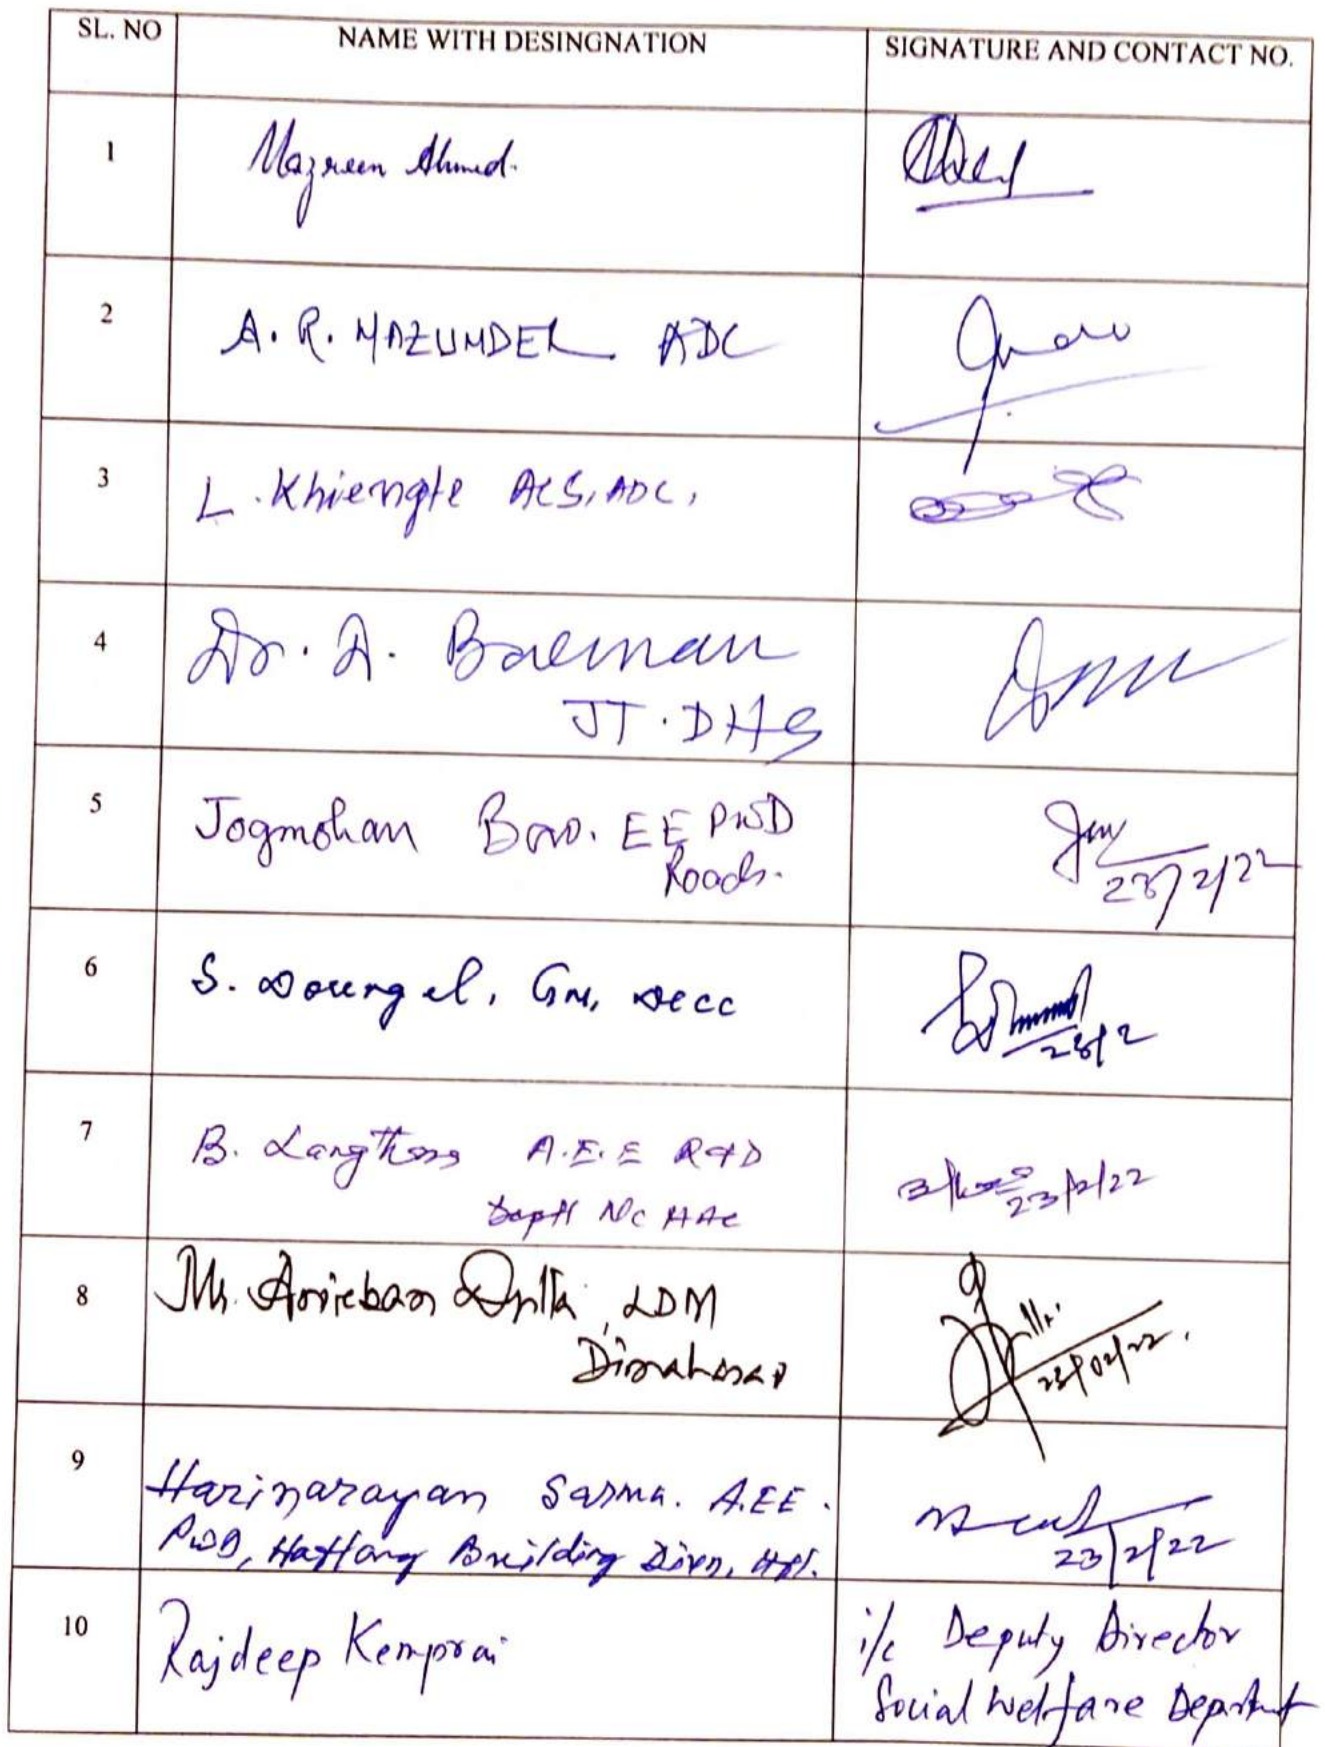 SL. NO NAME WITH DESINGNATION SIGNATURE AND CONTACT NO.
1 Nazreen Ahmed.
2 A. R. MAZUMDER ADC
3 L. Khiengte ACS, ADC,
4 Dr. A. Barman
JT. DHS
5 Jogmohan Boro. EE PWD
Roads.
23/2/22
6 S. Doungel, GM, DICC
23/2
7 B. Langthasa A.E.E R&D
Deptt NC HAC
23/2/22
8 Mr. Anirban Dutta, LDM
Dimahasao
23/02/22.
9 Harinarayan Sarma. A.EE.
PWD, Haflong Building Divn, Hfl.
23/2/22
10 Rajdeep Kemprai i/c Deputy Director
Social Welfare Department